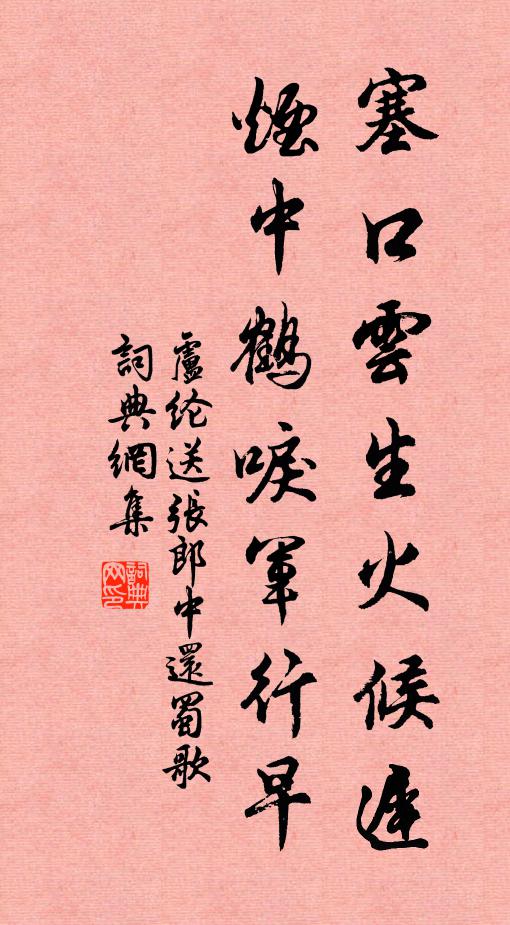 塞口雲生火候遲
煙中鶴唳軍行早
盧纶送張郎中還蜀歌
詞典網集
詞典网印